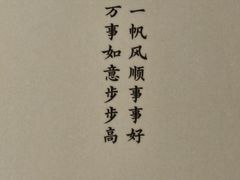 一帆风顺事事好
万事如意步步高